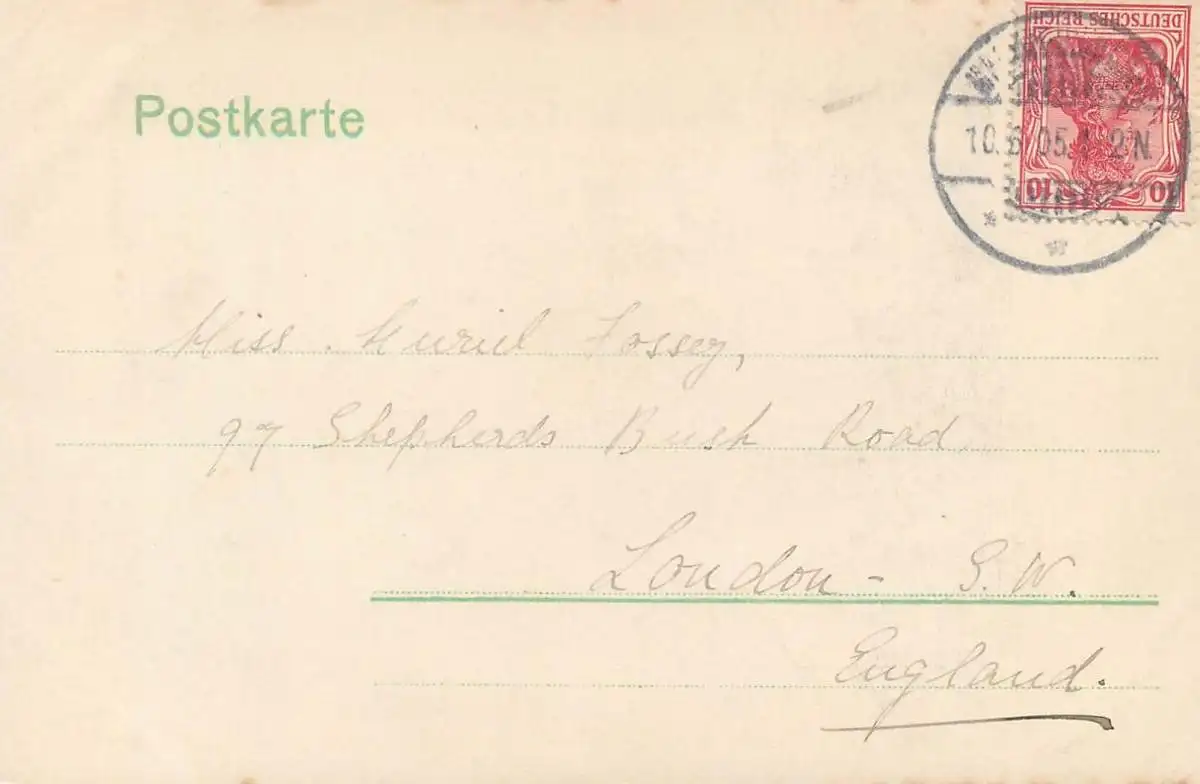 DEUTSCHES REICH
10 10
Postkarte
10.6.05. 2N.
Miss. Muriel Fossey,
97 Shepherds Bush Road
London - S.W.
England.